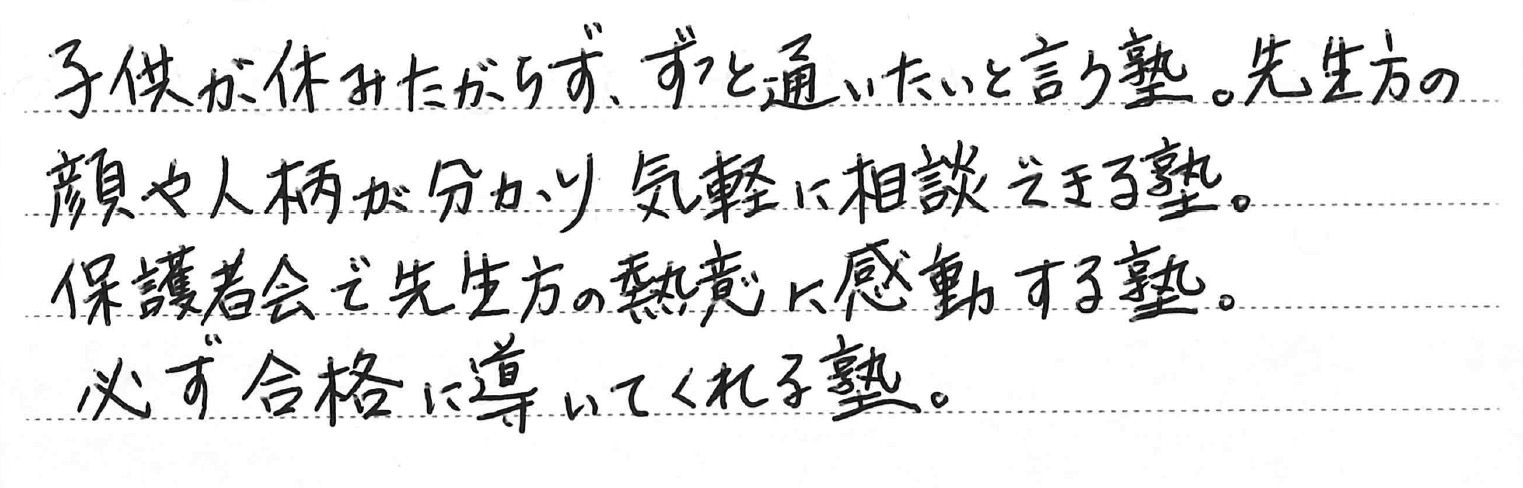 子供が休みたがらず、ずっと通いたいと言う塾。先生方の
顔や人柄が分かり気軽に相談できる塾。
保護者会で先生方の熱意に感動する塾。
必ず合格に導いてくれる塾。